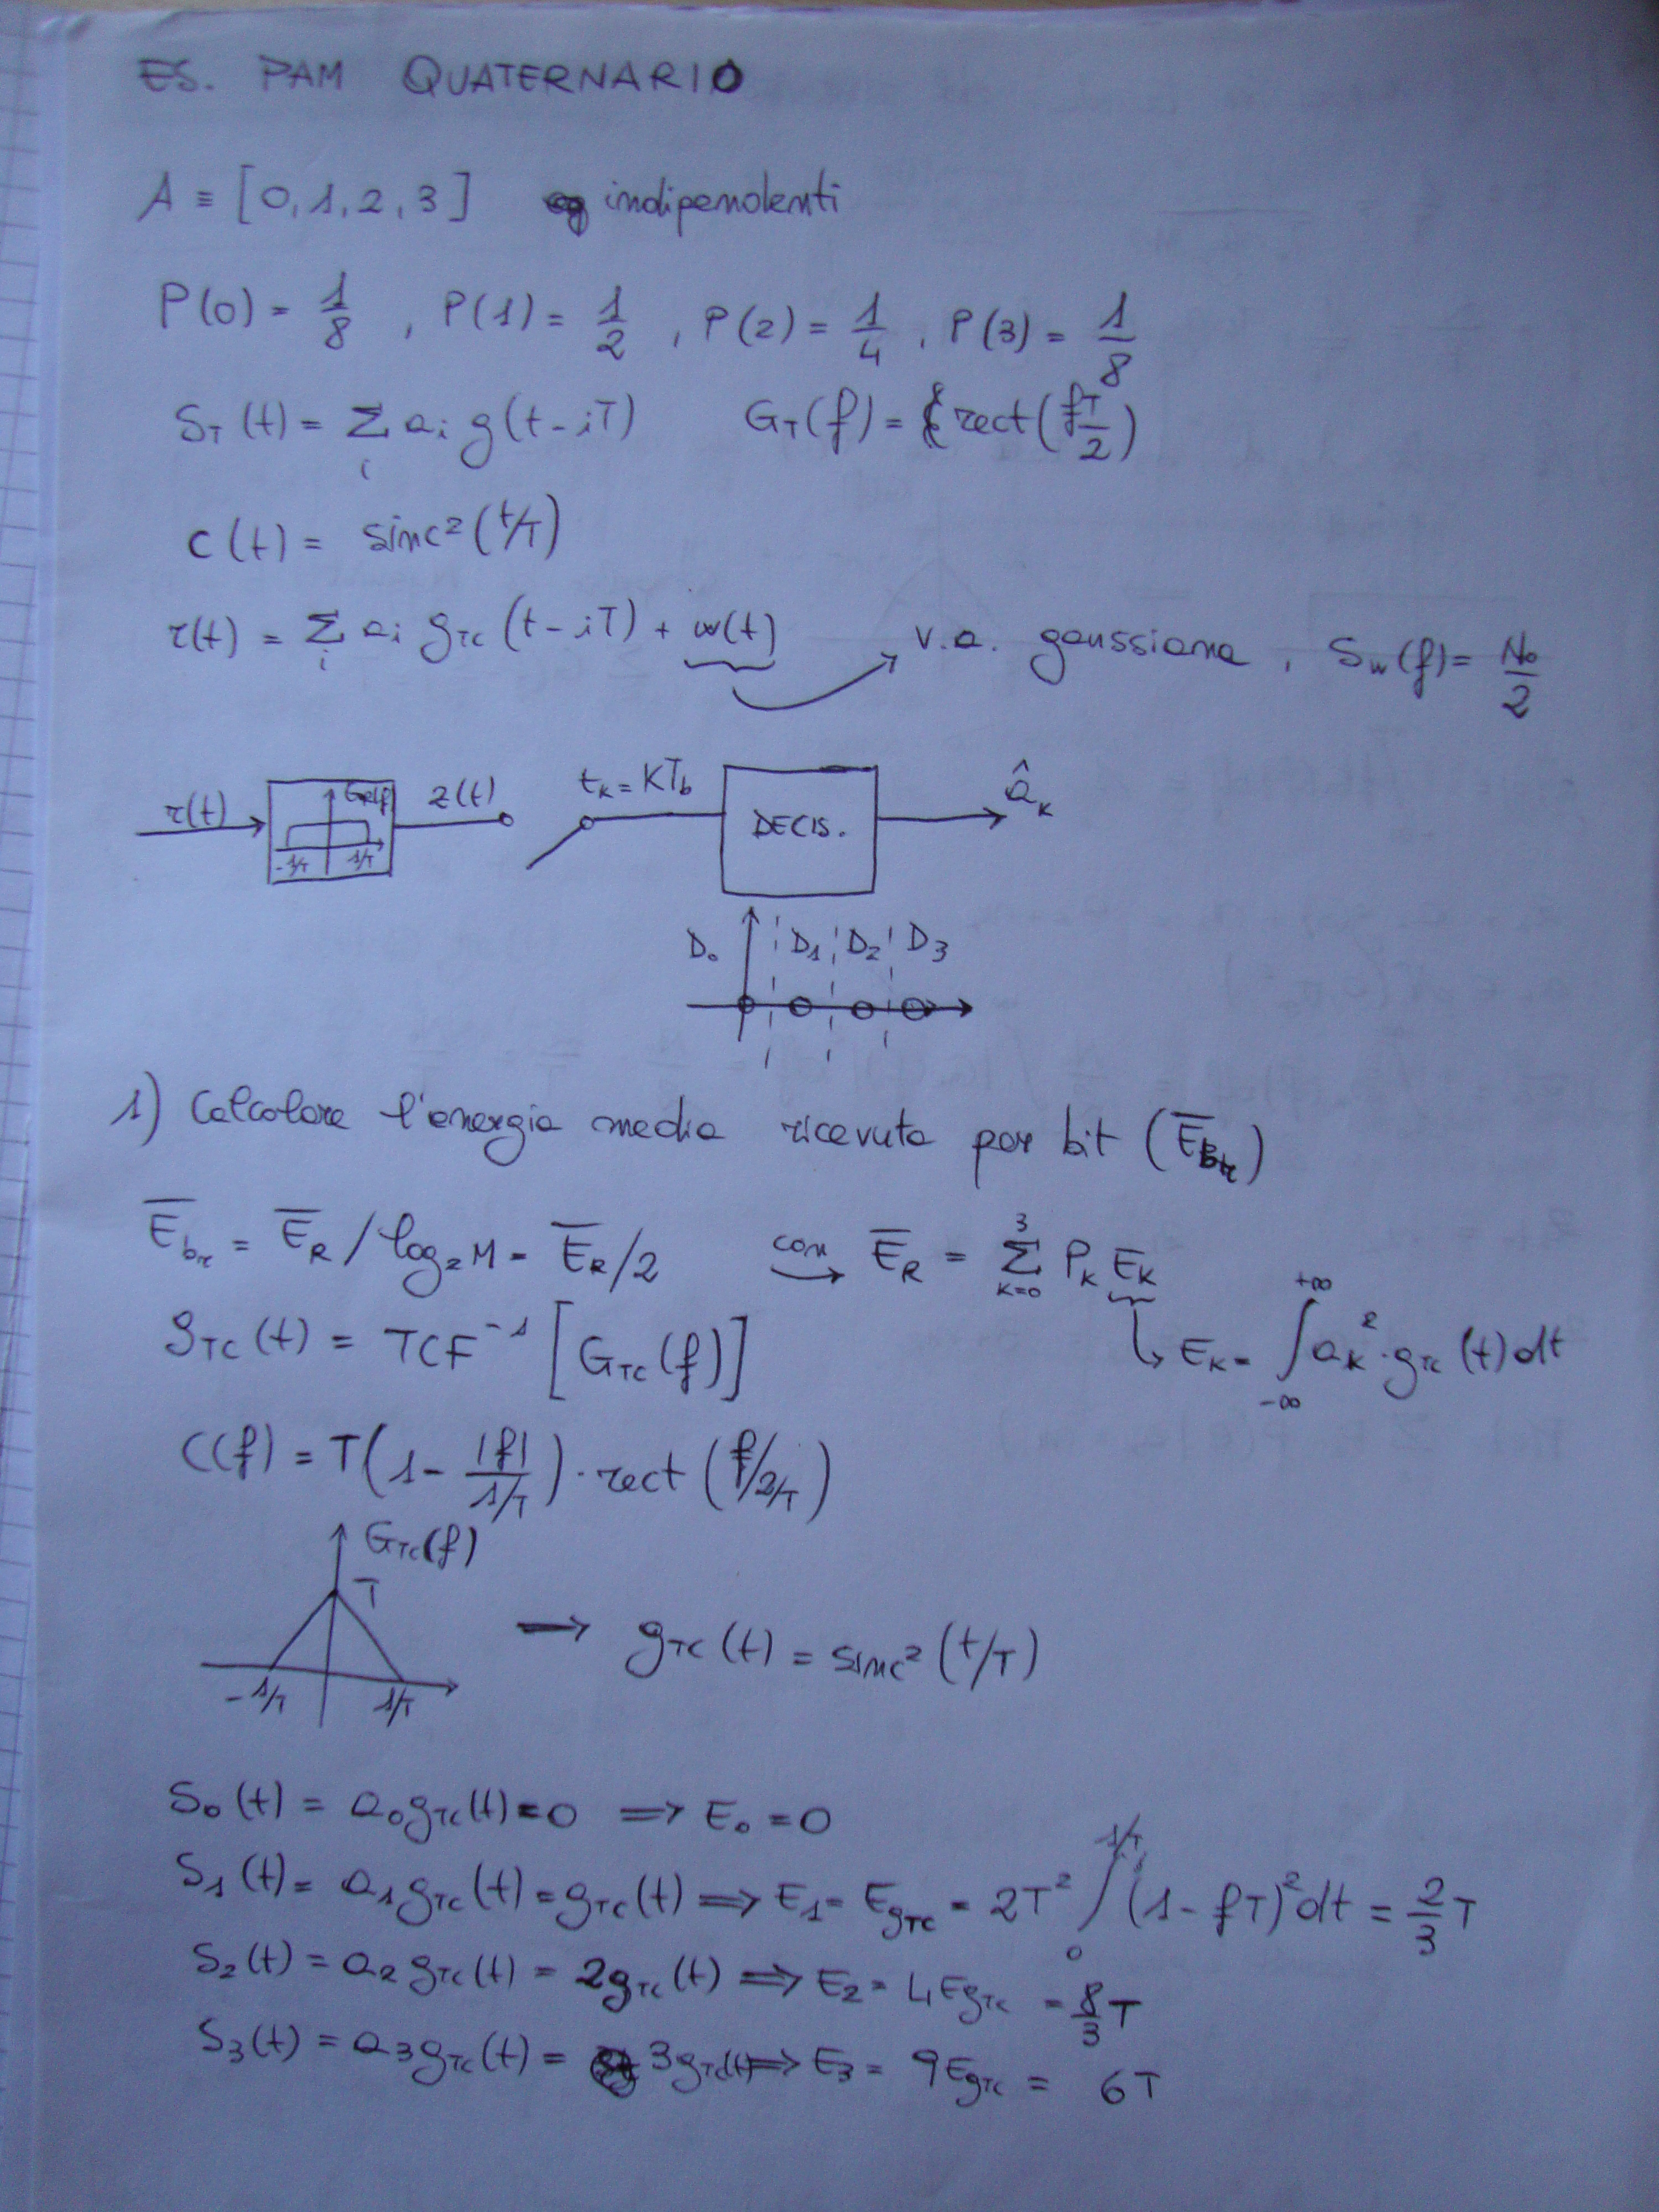 ES. PAM QUATERNARIO
A ≡ [0,1,2,3] indipendenti
P(0) = 1/8 , P(1) = 1/2 , P(2) = 1/4 , P(3) = 1/8
S_T(t) = Σ_i a_i g(t-iT) G_T(f) = rect(fT/2)
c(t) = sinc²(t/T)
r(t) = Σ_i a_i g_TC(t-iT) + w(t) → v.a. gaussiana , S_w(f) = N₀/2
r(t) G_R(f) -1/T 1/T z(t) t_k = KT_b DECIS. â_k
D₀ D₁ D₂ D₃
1) Calcolare l'energia media ricevuta per bit (E̅_br)
E̅_br = E̅_R / log₂M = E̅_R/2 con → E̅_R = Σ_{k=0}^{3} P_k E_k
g_TC(t) = TCF⁻¹ [G_TC(f)] ↳ E_k = ∫_{-∞}^{+∞} a_k² · g_TC(t) dt
C(f) = T(1 - |f|/1/T) · rect(f/2/T)
G_TC(f)
T
-1/T 1/T → g_TC(t) = sinc²(t/T)
S₀(t) = a₀g_TC(t) = 0 ⇒ E₀ = 0
S₁(t) = a₁g_TC(t) = g_TC(t) ⇒ E₁ = E_gTC = 2T² ∫_0^{1/T} (1 - fT)² dt = 2/3 T
S₂(t) = a₂g_TC(t) = 2g_TC(t) ⇒ E₂ = 4E_gTC = 8/3 T
S₃(t) = a₃g_TC(t) = 3g_TC(t) ⇒ E₃ = 9E_gTC = 6T